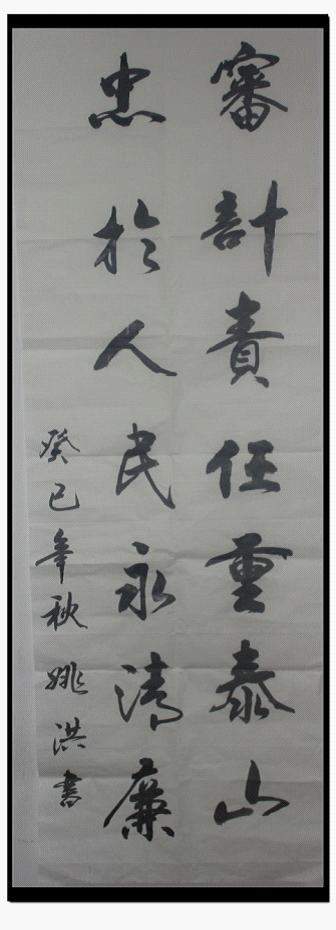 審計責任重泰山
忠於人民永清廉
癸巳年秋姚洪書